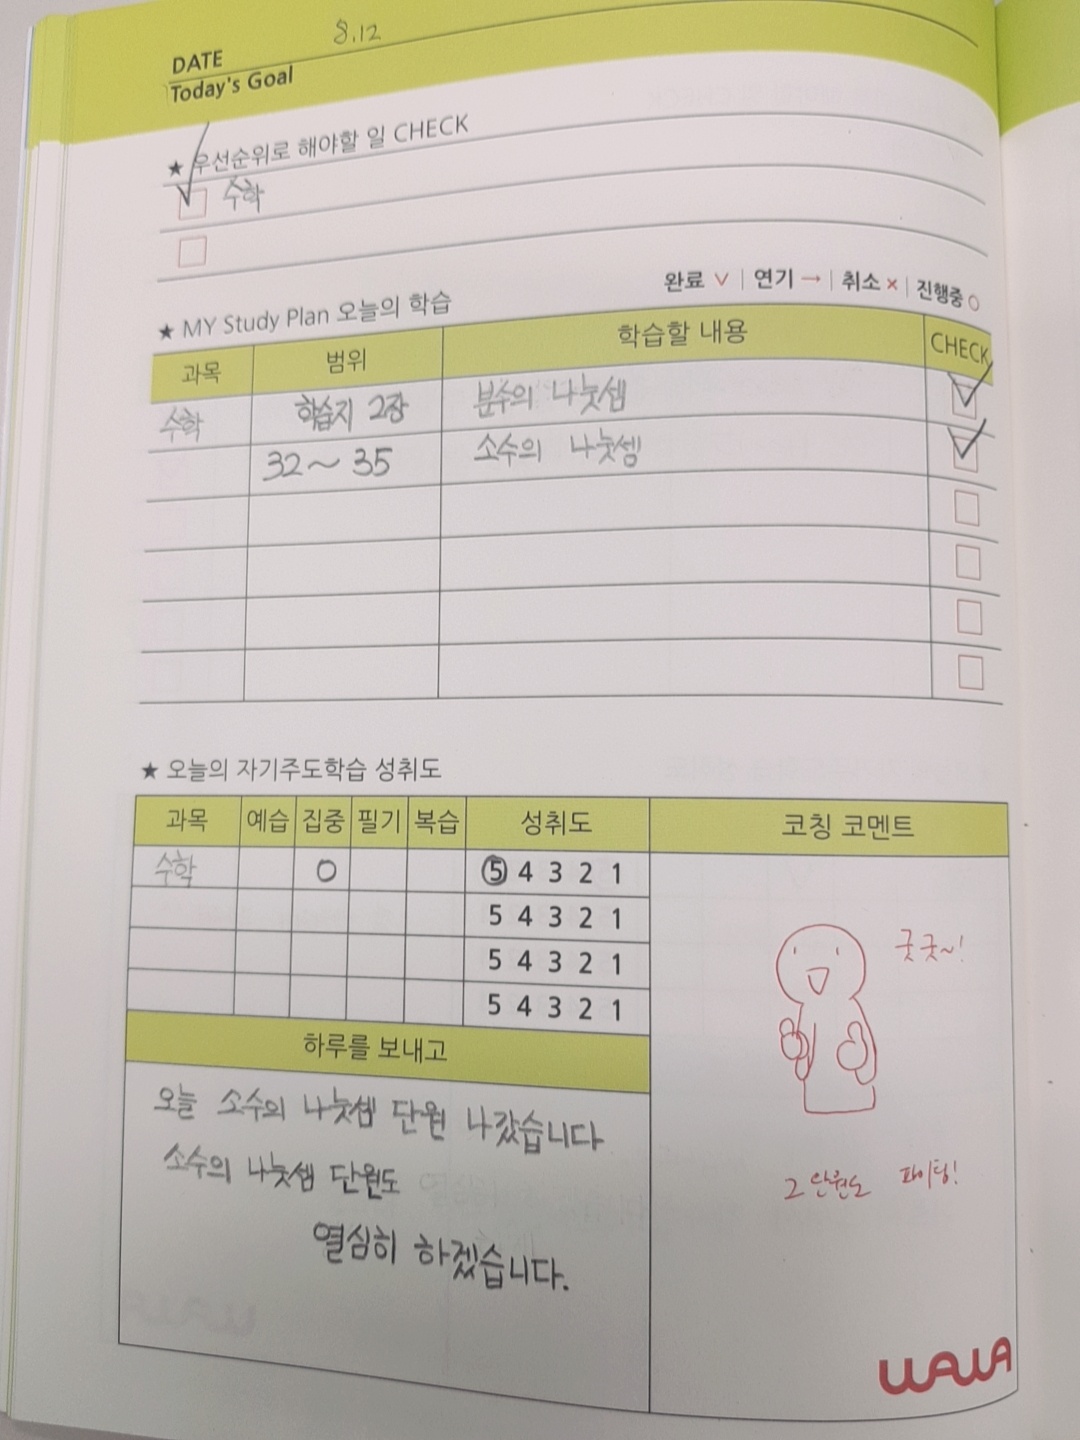 8.12
DATE
Today's Goal
★ 우선순위로 해야할 일 CHECK
수학
완료 ∨ | 연기 → | 취소 × | 진행중 ○
★ MY Study Plan 오늘의 학습
과목 범위 학습할 내용 CHECK
수학 학습지 2장 분수의 나눗셈
32~35 소수의 나눗셈
★ 오늘의 자기주도학습 성취도
과목 예습 집중 필기 복습 성취도 코칭 코멘트
수학 O 5 4 3 2 1
5 4 3 2 1
5 4 3 2 1
5 4 3 2 1
굿굿~!
하루를 보내고
오늘 소수의 나눗셈 단원 나갔습니다
소수의 나눗셈 단원도
열심히 하겠습니다.
그 단원도 파이팅!
WAWA